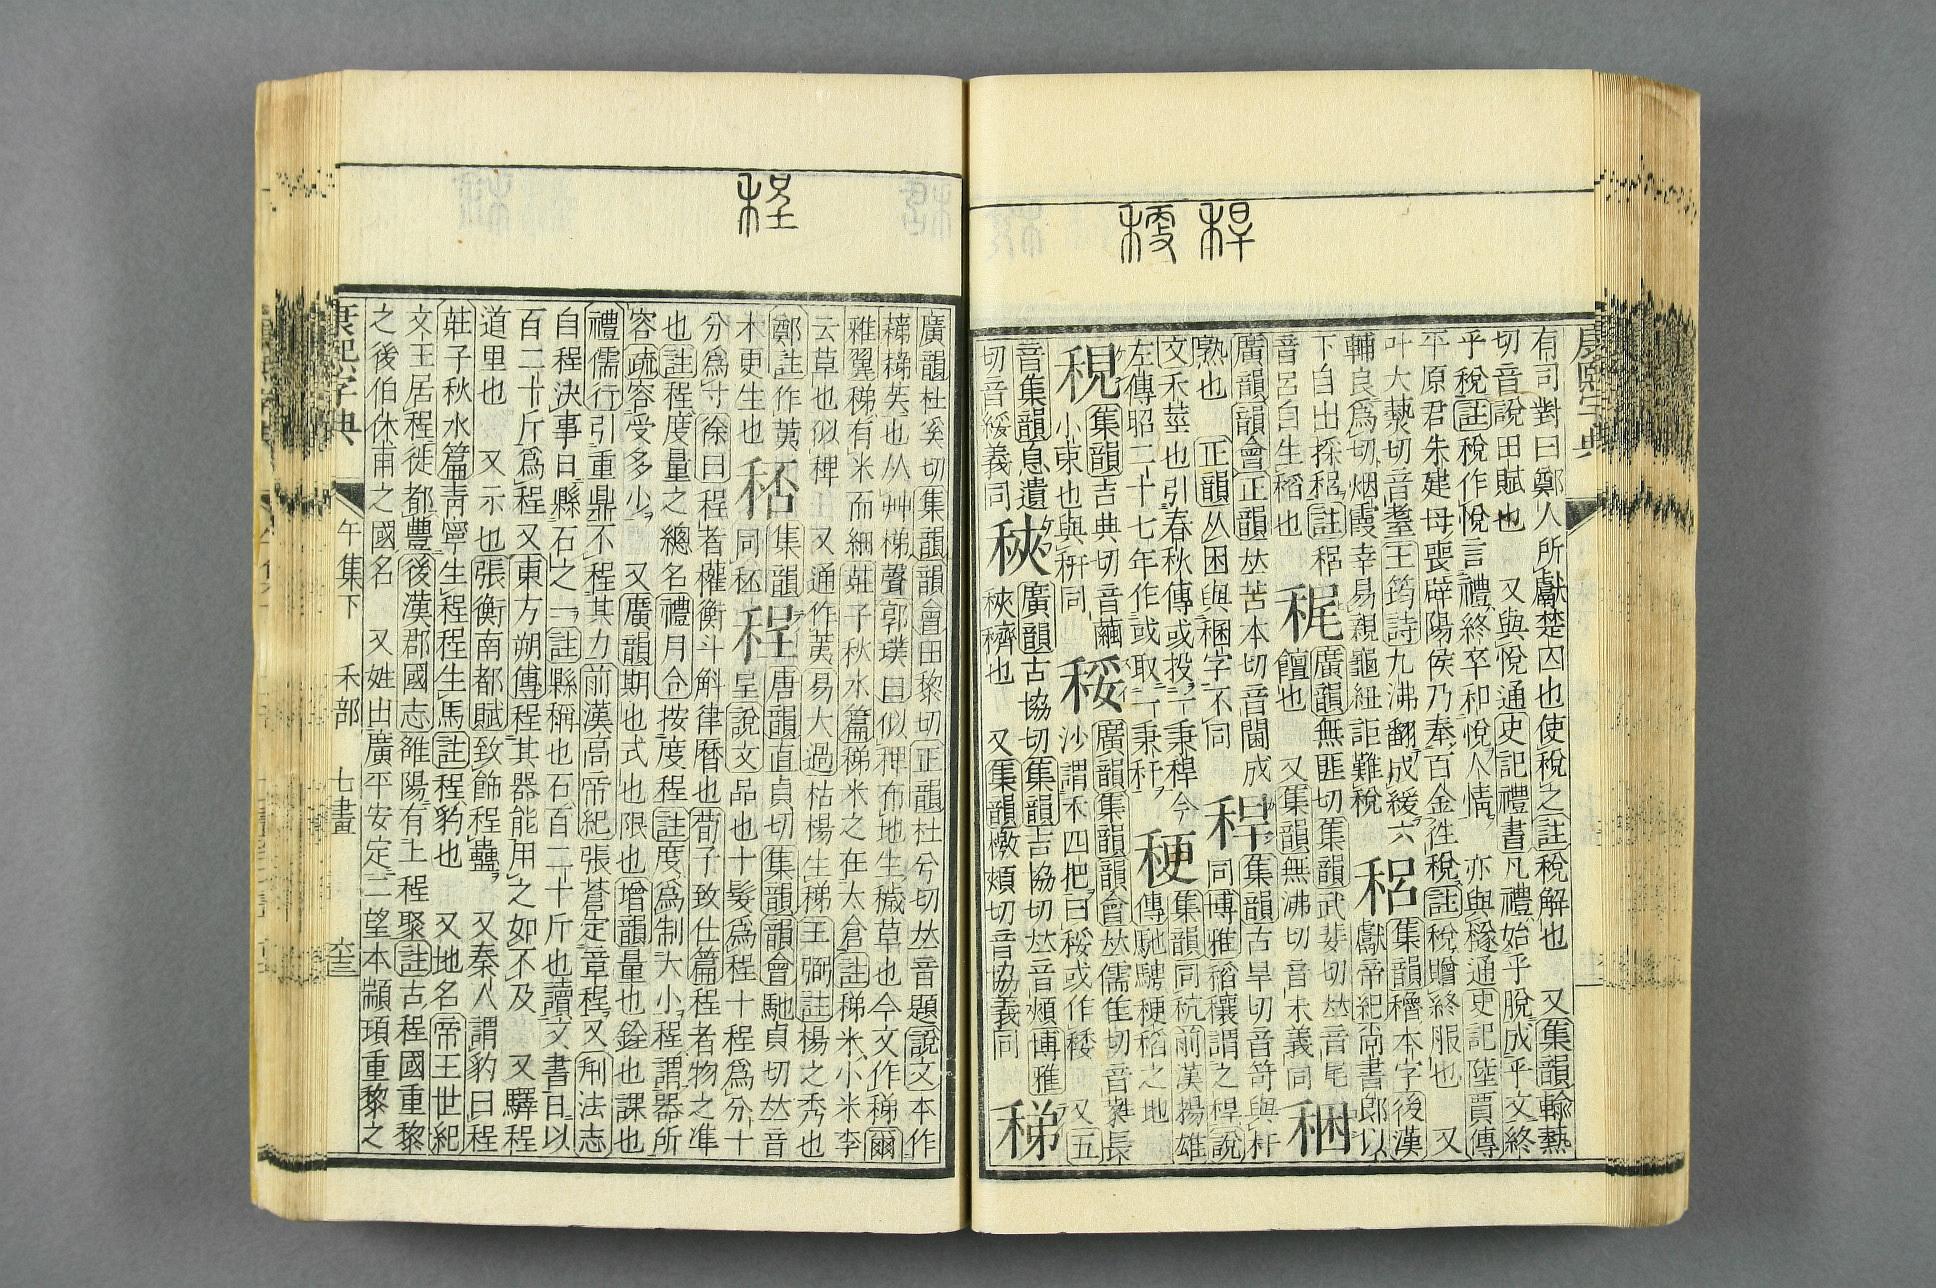 稈稉
有司對曰鄭人所獻楚囚也使稅之註稅解也 又集韻輸爇
切音說田賦也 又與悅通史記禮書凡禮始乎脫成乎文終
乎稅註稅作悅言禮終卒和悅人情 亦與襚通史記陸賈傳
平原君朱建母喪辟陽侯乃奉百金往稅註稅贈終服也 又
叶大藝切音臺王筠詩九沸翻成緩六
輔良爲切烟霞幸易親龜紐詎難稅
稆
集韻穭本字後漢
獻帝紀尚書郎以
下自出採稆註稆
音呂自生稻也
䅏
廣韻無匪切集韻武斐切𠀤音尾
饘也 又集韻無沸切音未義同
稇
廣韻韻會正韻𠀤苦本切音閫成
熟也 正韻𠀤困與稛字不同
稈
集韻古旱切音笴與秆
同博雅稻穰謂之稈說
文禾莖也引春秋傳或投一秉稈今
左傳昭二十七年作或取一秉秆
稉
集韻同秔前漢揚雄
傳馳騁稉稻之地
䅌
集韻吉典切音繭
小束也與䅈同
䅑
廣韻集韻韻會𠀤儒隹切音蘂長
沙謂禾四把曰䅑或作𥞪 又五
音集韻息遺
切音綏義同
䅐
廣韻古協切集韻吉協切𠀤音頰博雅
䅐穧也 又集韻檄頰切音協義同
稊
程
廣韻杜奚切集韻韻會田黎切正韻杜兮切𠀤音題說文本作
䕌䕌苵也从艸稊聲郭璞曰似稗布地生穢草也今文作稊爾
雅翼稊有米而細莊子秋水篇稊米之在太倉註稊米小米李
云草也似稗 又通作荑易大過枯楊生稊王弼註楊之秀也
鄭註作荑
木更生也
䅋
集韻
同秠
程
唐韻直貞切集韻韻會馳貞切𠀤音
呈說文品也十髮爲程十程爲分十
分爲寸徐曰程者權衡斗斛律曆也荀子致仕篇程者物之準
也註程度量之總名禮月令按度程註度爲制大小程謂器所
容疏容受多少 又廣韻期也式也限也增韻量也銓也課也
禮儒行引重鼎不程其力前漢高帝紀張蒼定章程又刑法志
自程決事日縣石之一註縣稱也石百二十斤也讀文書日以
百二十斤爲程 又東方朔傳程其器能用之如不及 又驛程
道里也 又示也張衡南都賦致飾程蠱 又秦人謂豹曰程
莊子秋水篇靑寧生程程生馬註程豹也 又地名帝王世紀
文王居程徙都豐後漢郡國志雒陽有上程聚註古程國重黎
之後伯休甫之國名 又姓出廣平安定二望本顓頊重黎之
康熙字典 午集下 禾部 七畫 六十三
康熙字典